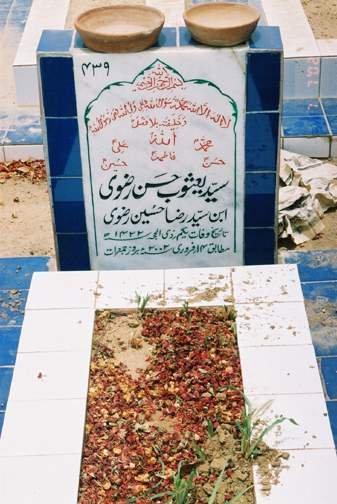 ۴۳۹
بسم اللہ الرحمن الرحیم
لا الہ الا اللہ محمد رسول اللہ علی ولی اللہ وصی رسول اللہ
و خلیفتہ بلا فصل
محمد اللہ علی
حسن فاطمہ حسین
سید یعثوب حسن رضوی
ابن سید رضا حسین رضوی
تاریخ وفات یکم ذی الحجہ ۱۴۲۲ھ
مطابق ۱۴ فروری ۲۰۰۲ء بروز جمعرات